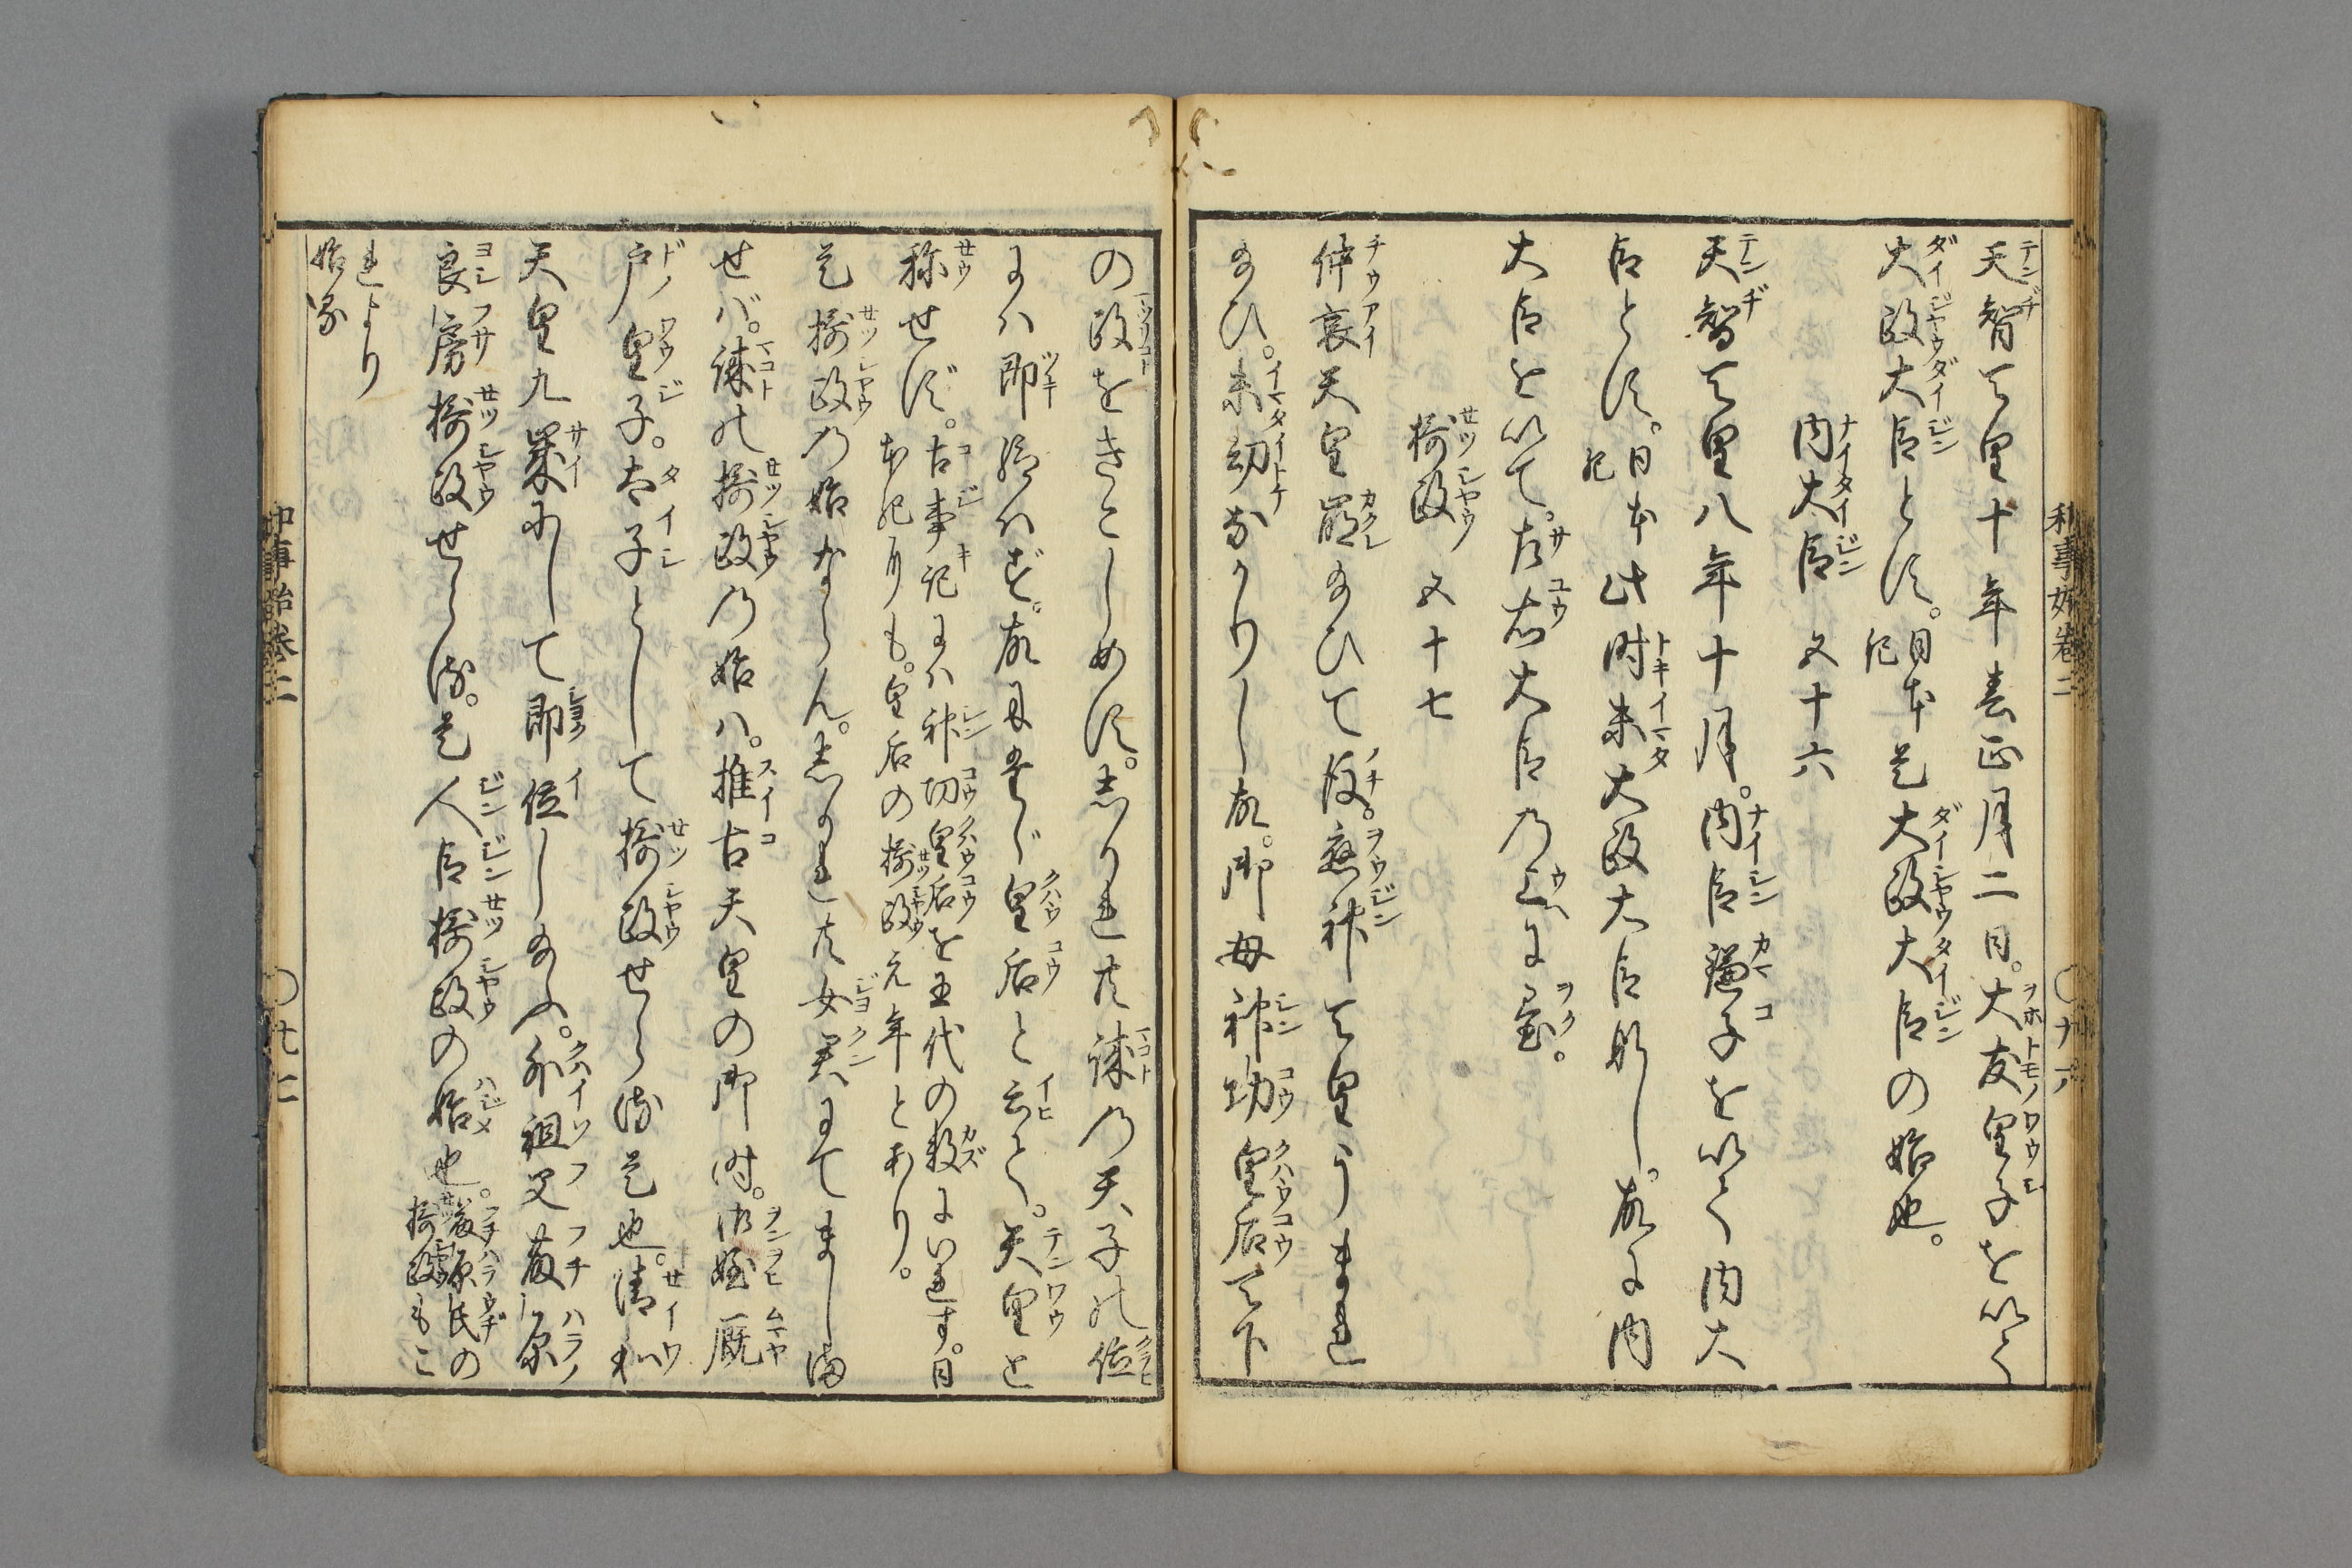 天智天皇十年春正月二日。大友皇子を以て
太政大臣とす。日本紀是大政大臣の始也。
内大臣 五十六
天智天皇八年十月。内臣鎌子を以て内大
臣とす。日本紀此時未大政大臣那し。故に内
大臣を以て。左右大臣乃上に置。
摂政 五十七
仲哀天皇崩給ひて後。應神天皇うまれ
給ひ。未幼なかりし故。御母神功皇后天下
の政をきこしめす。しかれ共誠乃天子の位
には即給はず。故に只皇后と云て。天皇と
称せず。古事記には神功皇后を王代の数にいれず。日
本紀にも。皇后の摂政元年とあり。
是摂政乃始ならん。しかれ共女君にてましま
せば。誠の摂政乃始は。推古天皇の御時。御姪厩
戸皇子。太子として摂政せらる是也。清和
天皇九歳にして即位し給ふ。外祖父藤原
良房摂政せらる。是人臣摂政の始也。藤原氏の
摂政もこ
れより
始る
和事始巻二 〇十六
和事始巻二 〇十七